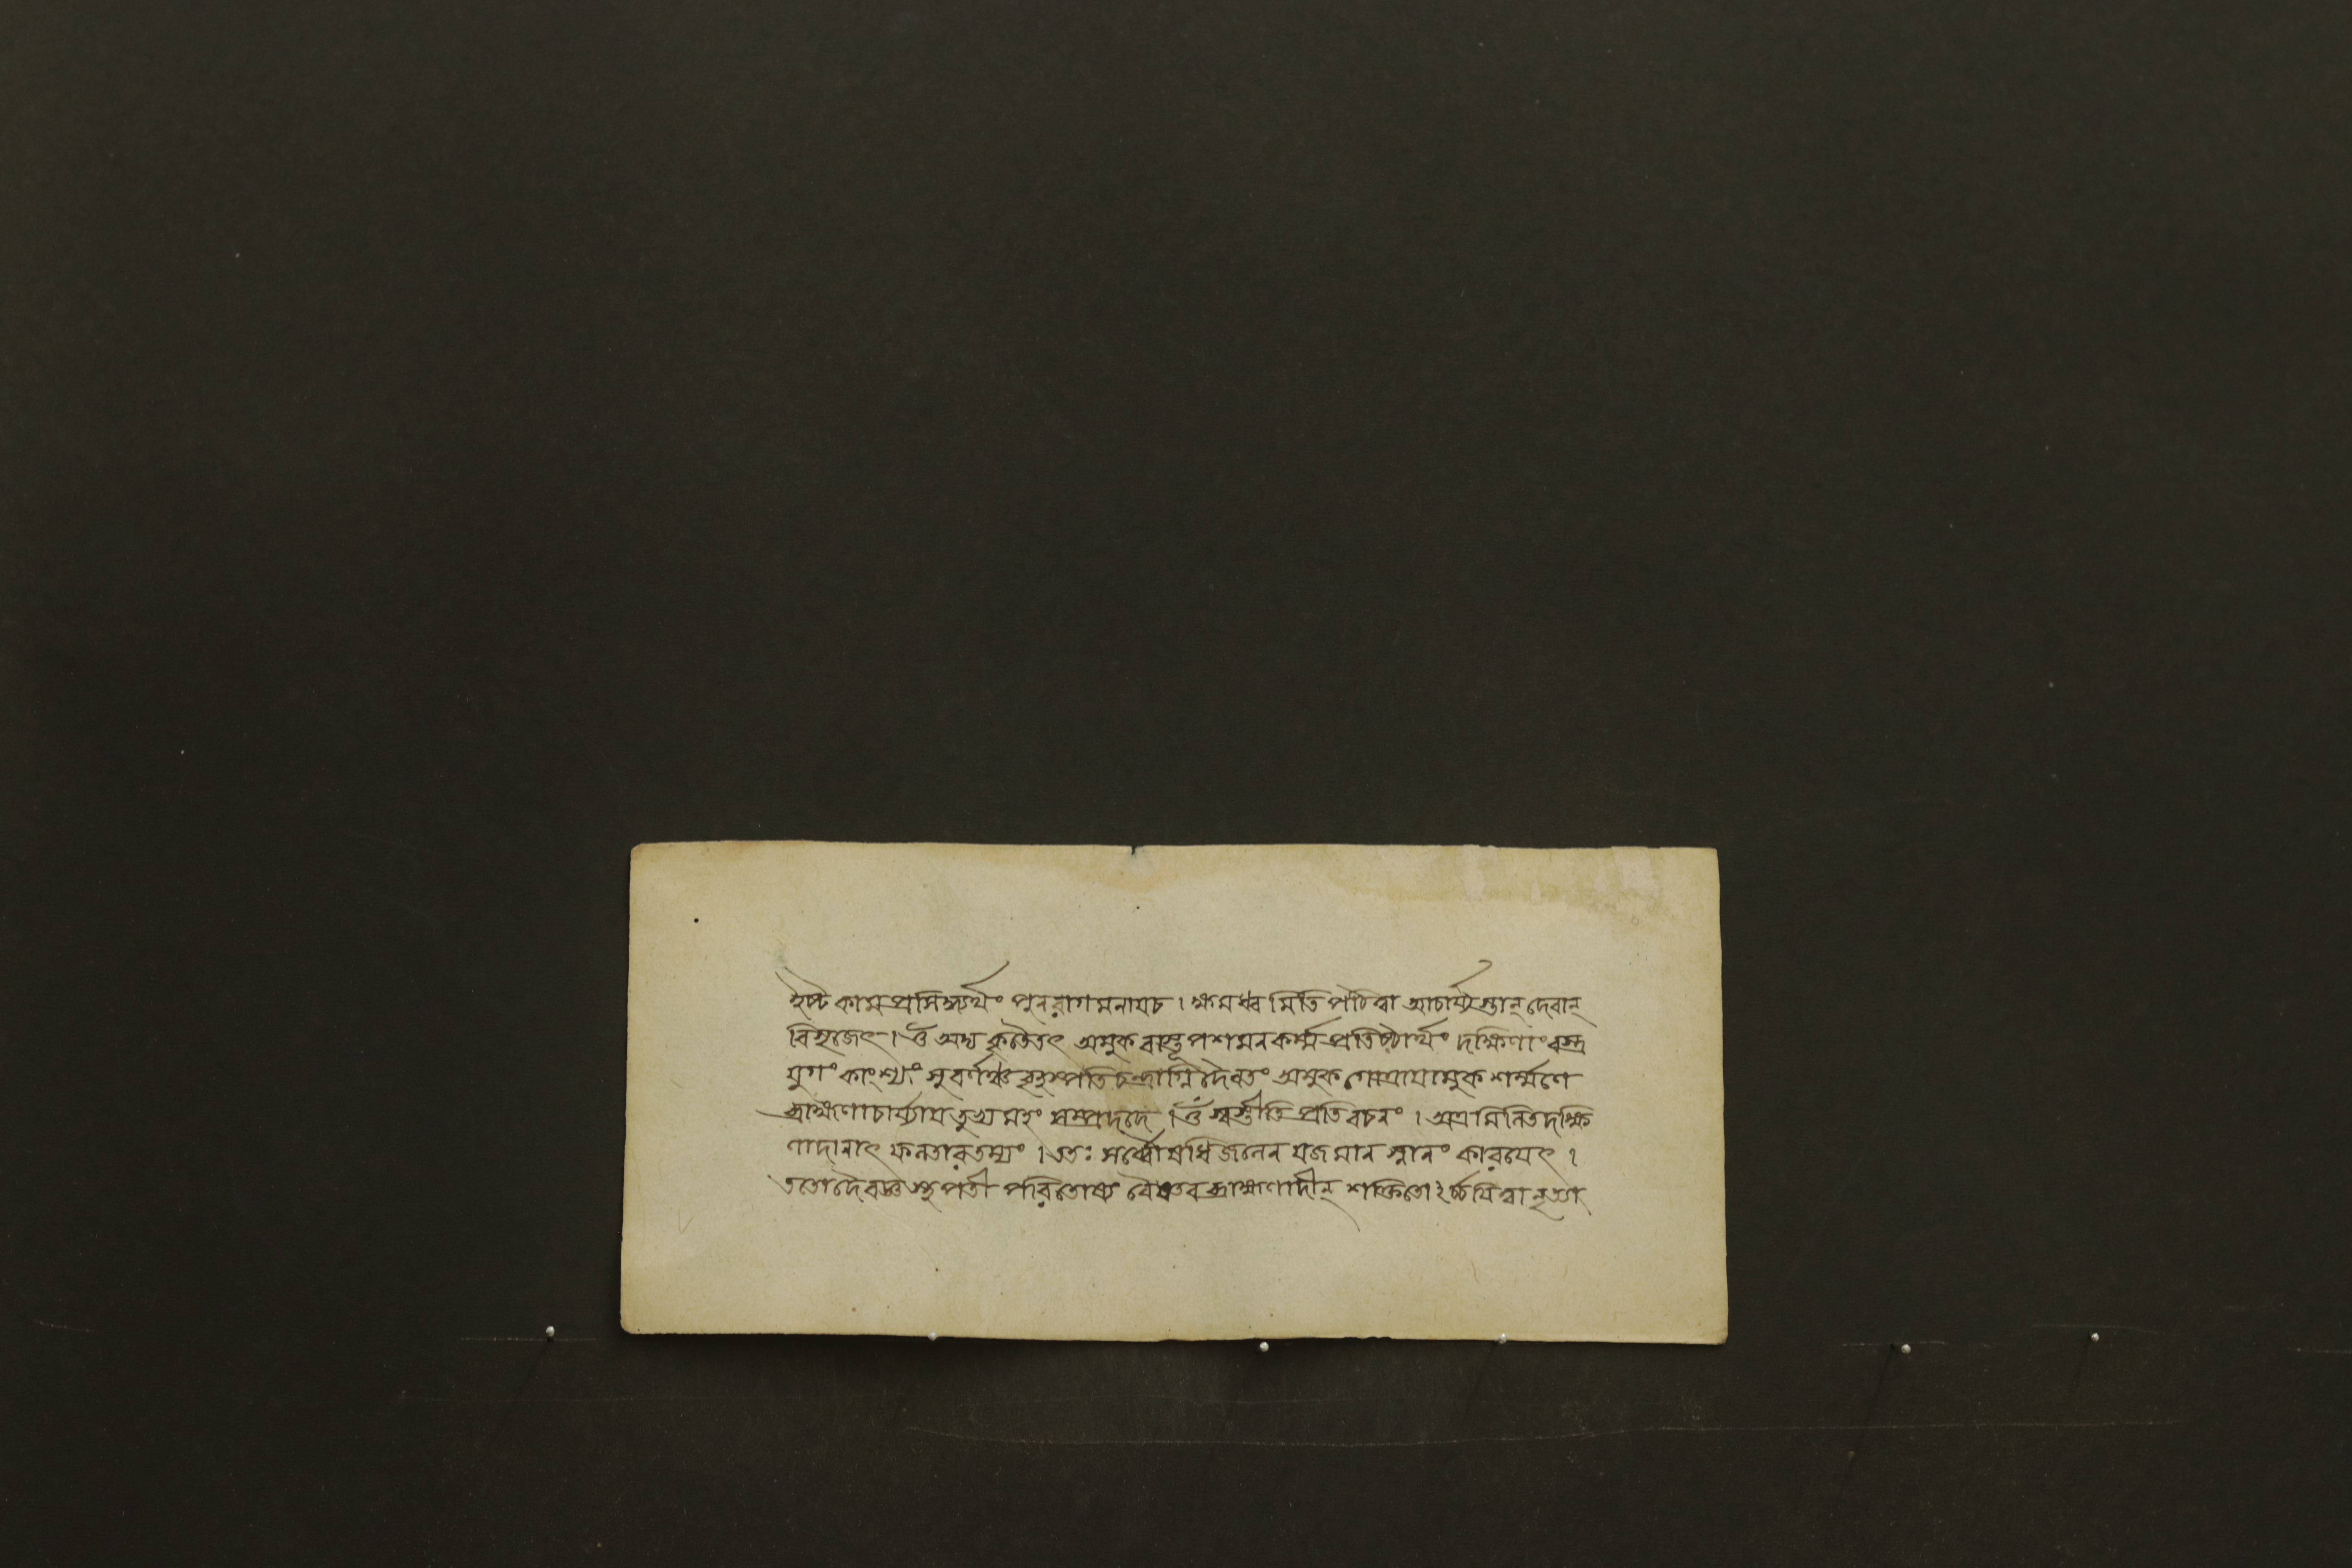 ইষ্টকামপ্রসিদ্ধ্যর্থং পুনরাগমনাযচ । ক্ষমধ্বমিতি পঠিত্বা আচার্য্যস্তান্ দেবান্
বিসৃজেৎ । ওঁ অদ্য কৃতৈতৎ অমুক বাস্তূপশমনকর্ম্মপ্রতিষ্ঠার্থং দক্ষিণাং বস্ত্র
যুগং কাংশ্যং সুবর্ণঞ্চ বৃহস্পতিচন্দ্রাগ্নিদৈবতং অমুক গোত্রাযামুক শর্ম্মণে
ব্রাহ্মণাচার্য্যায তুভ্যমহং সম্প্রদদে । ওঁ স্বস্তীতি প্রতিবচনং । অত্র মিলিতদক্ষি
ণাদানাৎ ফলতারতম্যং । ততঃ সর্ব্বৌষধিজলেন যজমান স্নানং কারযেৎ ।
ততো দৈবজ্ঞস্থপতী পরিতোষ্য বৈষ্ণবব্রাহ্মণাদীন্ শক্তিতোঽর্চ্চযিত্বা নৃত্য